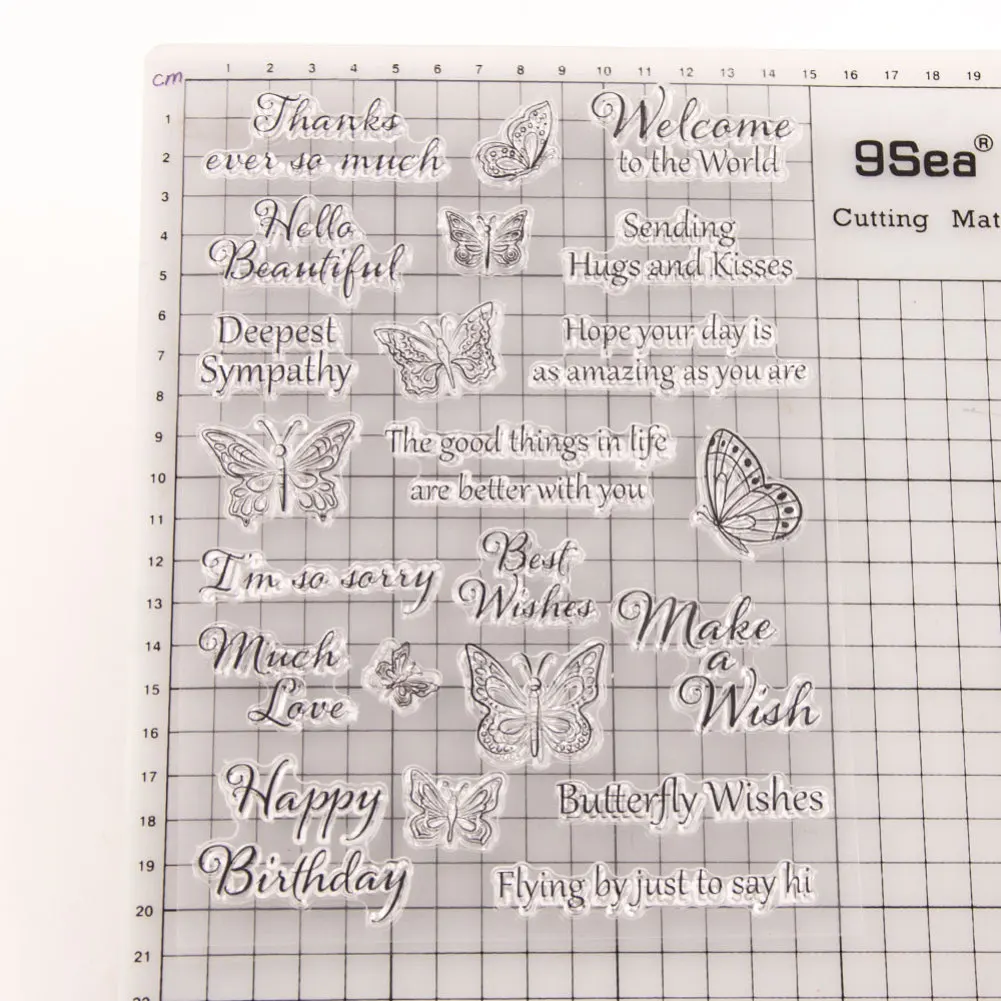 1 2 3 4 5 6 7 8 9 10 11 12 13 14 15 16 17 18 19
cm
1
2
3
4
5
6
7
8
9
10
11
12
13
14
15
16
17
18
19
20
21
22
9Sea®
Cutting Mat
Thanks
ever so much
Welcome
to the World
Hello
Beautiful
Sending
Hugs and Kisses
Deepest
Sympathy
Hope your day is
as amazing as you are
The good things in life
are better with you
I'm so sorry
Best
Wishes
Make
a
Wish
Much
Love
Happy
Birthday
Butterfly Wishes
Flying by just to say hi